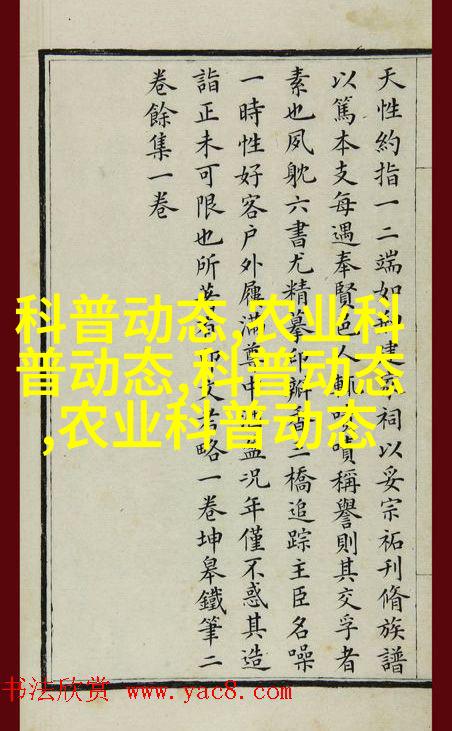 天性約指一二端如建祠以妥宗祏刊脩族譜
以篤本支每遇奉賢邑人輒嘖嘖稱譽則其交孚者
素也夙躭六書尤精摹印瓣香二橋追踪主臣名噪
一時性好客户外屨滿尊中盈况年僅不惑其造
詣正未可限也所文略一卷坤皋鐵筆二
卷餘集一卷
科普动态,农业科
普动态,科普动态
,农业科普动态
书法欣赏 www.yac8.com